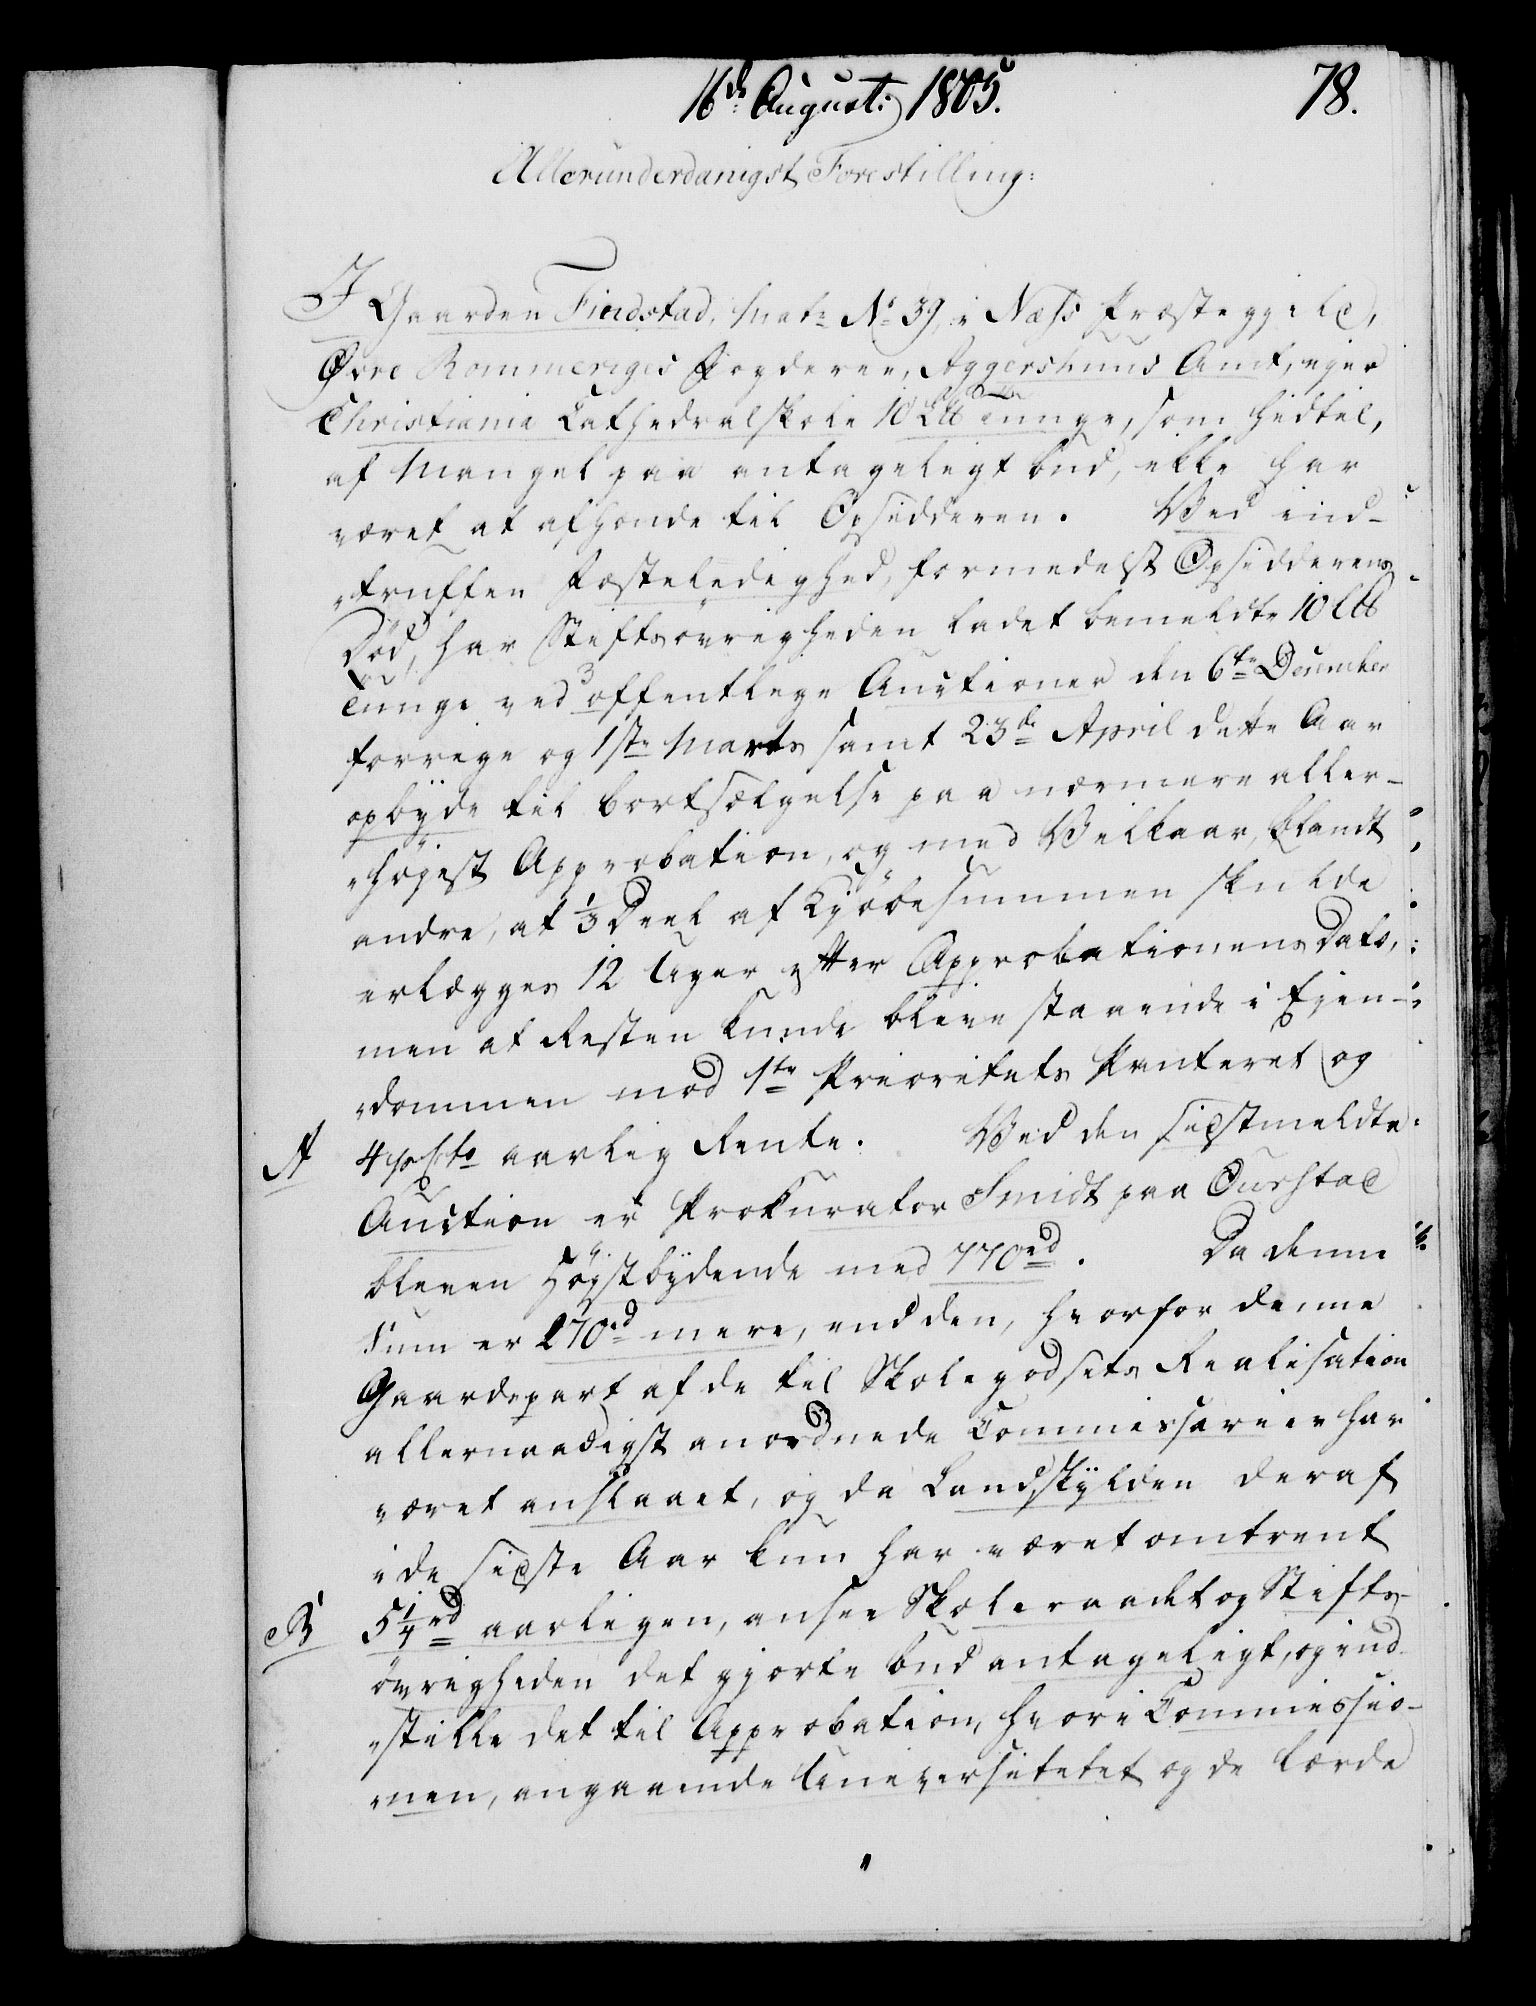 16de August: 1805.
78.
Allerunderdanigst Forestilling:
I Gaarden Findstad, Matr No 39, i Næss Præstegjeld,
Øvre Rommeriges Fogderie, Aggershuus Amt, ejer
Christiania Cathedralskole 10 L℔ Tunge, som hidtil,
af Mangel paa antageligt bud, ikke har
været at afhænde til Opsidderen. Ved ind-
truffen Fæsteledighed, formedelst Opsidderens
Død, har Stiftsøvrigheden ladet bemeldte 10 L℔
Tunge ved 3 offentlige Auctioner den 6te December
forrige og 1ste Marts samt 23de April dette Aar
opbyde til bortsælgelse paa nærmere aller-
højest Approbation, og med Vilkaar, blandt
andre, at 1/3 Deel af Kjöbesummen skulde
erlægges 12 Uger efter Approbationens Dato,
men at Resten kunde blive staaende i Ejen-
dommen mod 1te Prioritets Panteret og
A 4 p Cto aarlig Rente. Ved den sidstmeldte
Auction er Prokurator Smidt paa Ourstad
bleven Højstbydende med 770rd. Da denne
Sum er 270rd mere, end den, hvorfor denne
Gaardepart af de til Skolegodsets Realisation
allernaadigst anordnede Commissarier har
været anslaaet, og da Landskylden deraf
i de sidste Aar kun har været omtrent
B 5 1/4 rd aarligen, ansee Skoleraadet og Stifts-
övrigheden det gjorte bud antageligt, og ind-
stille det til Approbation, hvori Commissio-
nen, angaaende Universitetet og de lærde